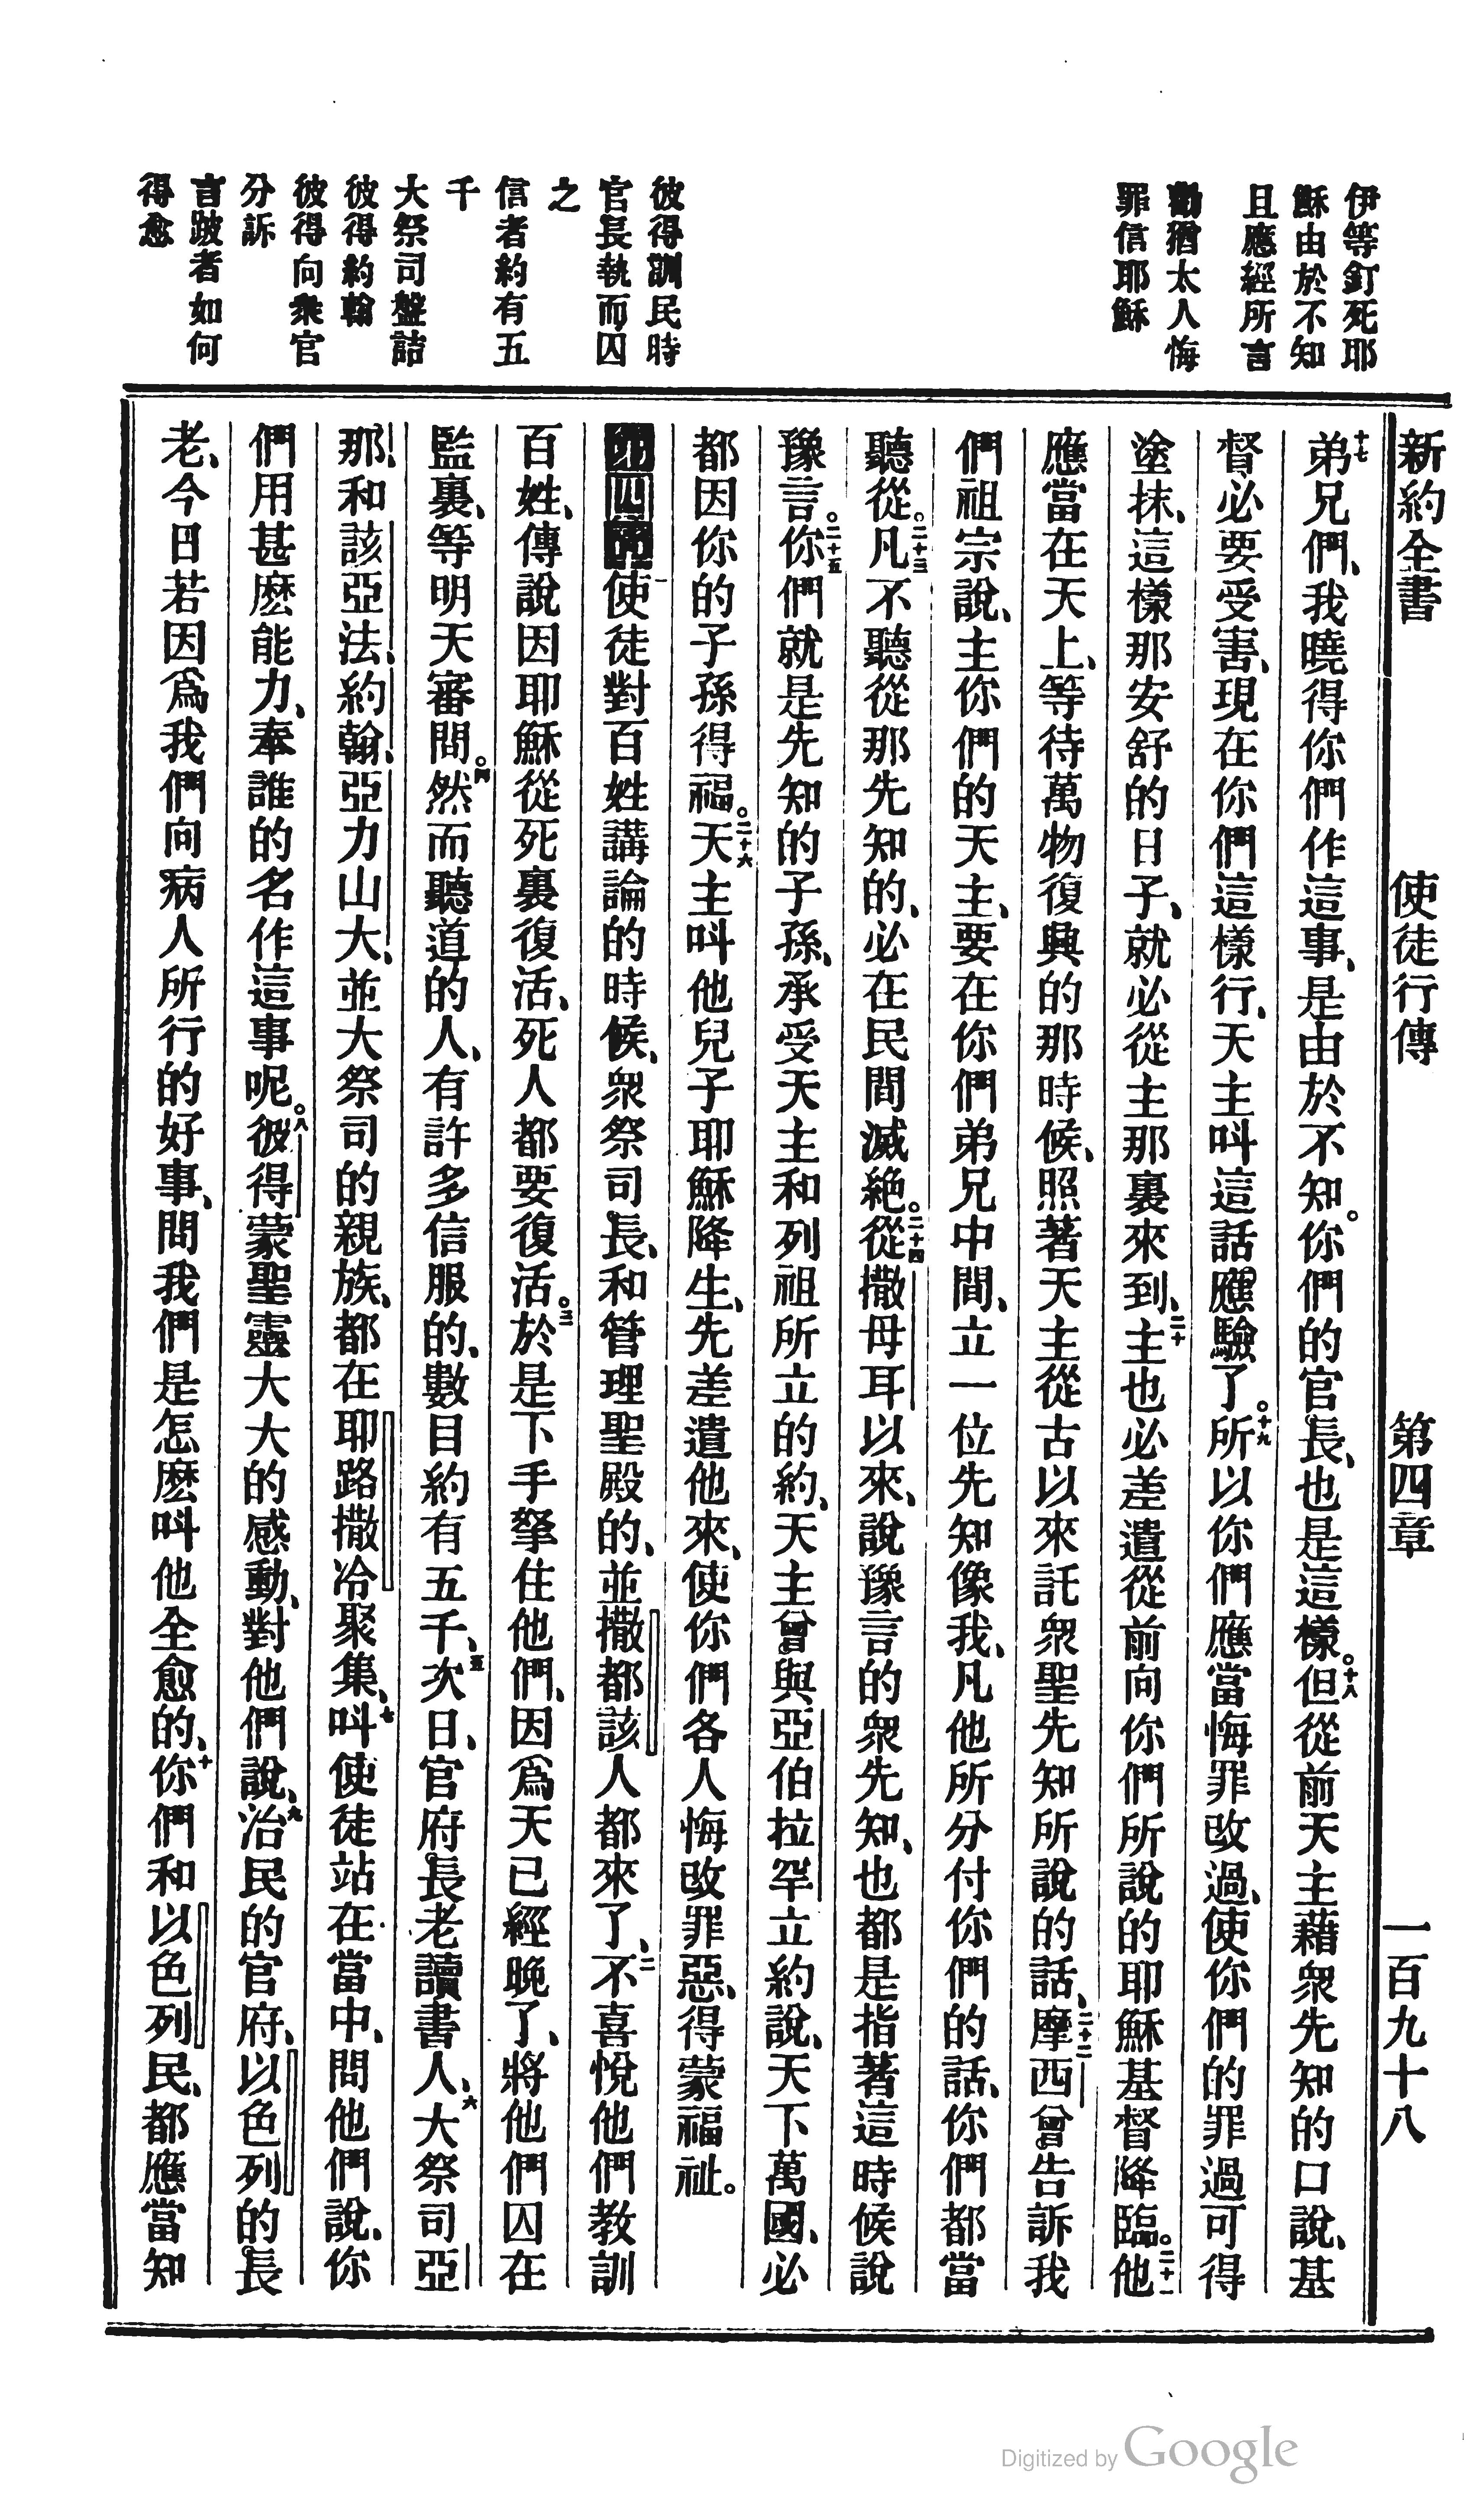 新約全書 使徒行傳 第四章 一百九十八
伊等釘死耶
穌由於不知
且應經所言
勸猶太人悔
罪信耶穌
彼得訓民時
官長執而囚
之
信者約有五
千
大祭司盤詰
彼得約翰
彼得向衆官
分訴
言跛者如何
得愈
十七弟兄們、我曉得你們作這事、是由於不知。你們的官長、也是這樣。十八但從前天主藉衆先知的口說、基
督必要受害、現在你們這樣行、天主呌這話應驗了。十九所以你們應當悔罪改過、使你們的罪過可得
塗抹、這樣那安舒的日子、就必從主那裏來到、二十主也必差遣從前向你們所說的耶穌基督降臨。二十一他
應當在天上、等待萬物復興的那時候、照著天主從古以來託衆聖先知所說的話、二十二摩西曾告訴我
們祖宗說、主你們的天主、要在你們弟兄中間、立一位先知像我、凡他所分付你們的話、你們都當
聽從。二十三凡不聽從那先知的、必在民間滅絕。二十四從撒母耳以來、說豫言的衆先知、也都是指著這時候說
豫言。二十五你們就是先知的子孫、承受天主和列祖所立的約、天主曾與亞伯拉罕立約說、天下萬國、必
都因你的子孫得福。二十六天主呌他兒子耶穌降生、先差遣他來、使你們各人悔改罪惡、得蒙福祉。
第四章一使徒對百姓講論的時候、衆祭司長、和管理聖殿的、並撒都該人都來了、二不喜悅他們教訓
百姓、傳說因耶穌從死裏復活、死人都要復活。三於是下手拏住他們、因爲天已經晚了、將他們囚在
監裏、等明天審問。四然而聽道的人、有許多信服的、數目約有五千、五次日、官府長老讀書人、六大祭司亞
那、和該亞法、約翰、亞力山大、並大祭司的親族、都在耶路撒冷聚集、七呌使徒站在當中、問他們說、你
們用甚麽能力、奉誰的名作這事呢。八彼得蒙聖靈大大的感動、對他們說、九治民的官府、以色列的長
老、今日若因爲我們向病人所行的好事、問我們是怎麽呌他全愈的、十你們和以色列民、都應當知
Digitized by Google